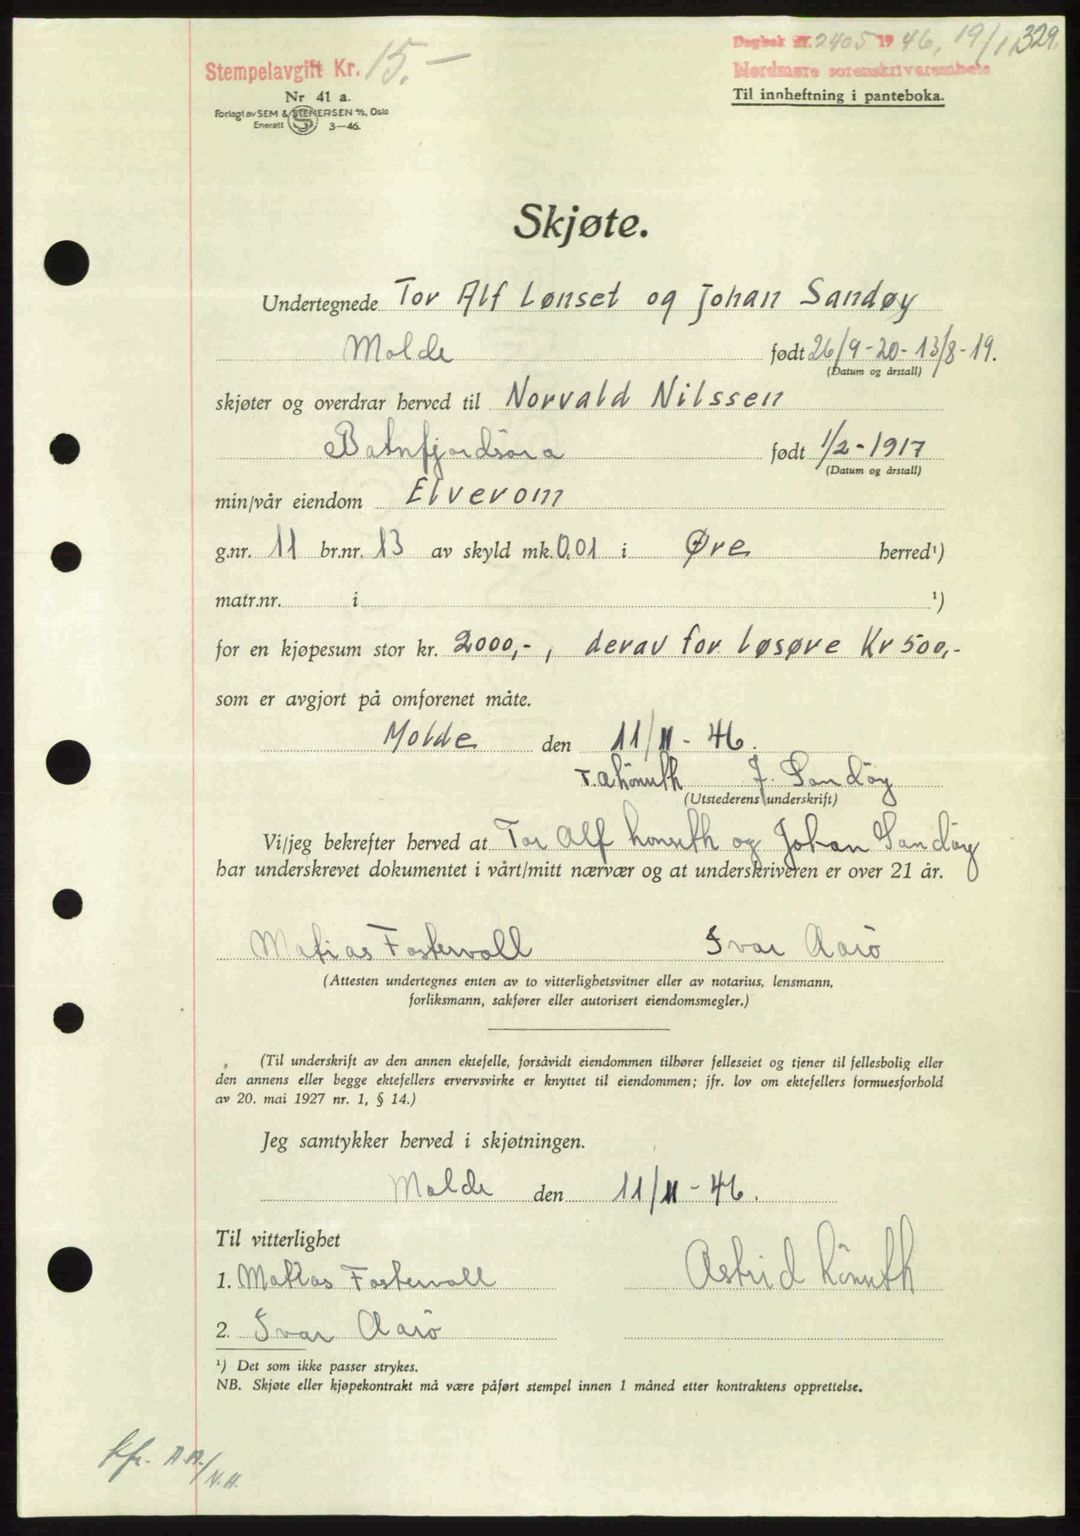 Dagbok nr. 2405 1946, 19/11 329.
Stempelavgift Kr. 15.—
Nordmøre sorenskriverembete
Nr 41 a.
Til innheftning i panteboka.
Forlagt av SEM & STENERSEN A/S, Oslo
Enerett S 3—46.
Skjøte.
Undertegnede Tor Alf Lønset og Johan Sandøy
Molde født 26/9-20- 13/8-19.
(Datum og årstall)
skjøter og overdrar herved til Norvald Nilssen
Batnfjordsøra født 1/2-1917
(Datum og årstall)
min/vår eiendom Elverom
g.nr. 11 br.nr. 13 av skyld mk. 0,01 i Øre herred¹)
matr.nr. i ¹)
for en kjøpesum stor kr. 2000,-, derav for løsøre Kr 500,-
som er avgjort på omforenet måte.
Molde den 11/11-46.
T.A Lönseth J. Sandöy
(Utstederens underskrift)
Vi/jeg bekrefter herved at Tor Alf Lonseth og Johan Sandöy
har underskrevet dokumentet i vårt/mitt nærvær og at underskriveren er over 21 år.
Matias Fostervoll Ivar Aarö
(Attesten undertegnes enten av to vitterlighetsvitner eller av notarius, lensmann,
forliksmann, sakfører eller autorisert eiendomsmegler.)
(Til underskrift av den annen ektefelle, forsåvidt eiendommen tilhører felleseiet og tjener til fellesbolig eller
den annens eller begge ektefellers ervervsvirke er knyttet til eiendommen; jfr. lov om ektefellers formuesforhold
av 20. mai 1927 nr. 1, § 14.)
Jeg samtykker herved i skjøtningen.
Molde den 11/11-46.
Til vitterlighet
1. Matias Fostervoll Astrid Lönseth
2. Ivar Aarö
¹) Det som ikke passer strykes.
NB. Skjøte eller kjøpekontrakt må være påført stempel innen 1 måned etter kontraktens opprettelse.
kfr. A.A./N.H.